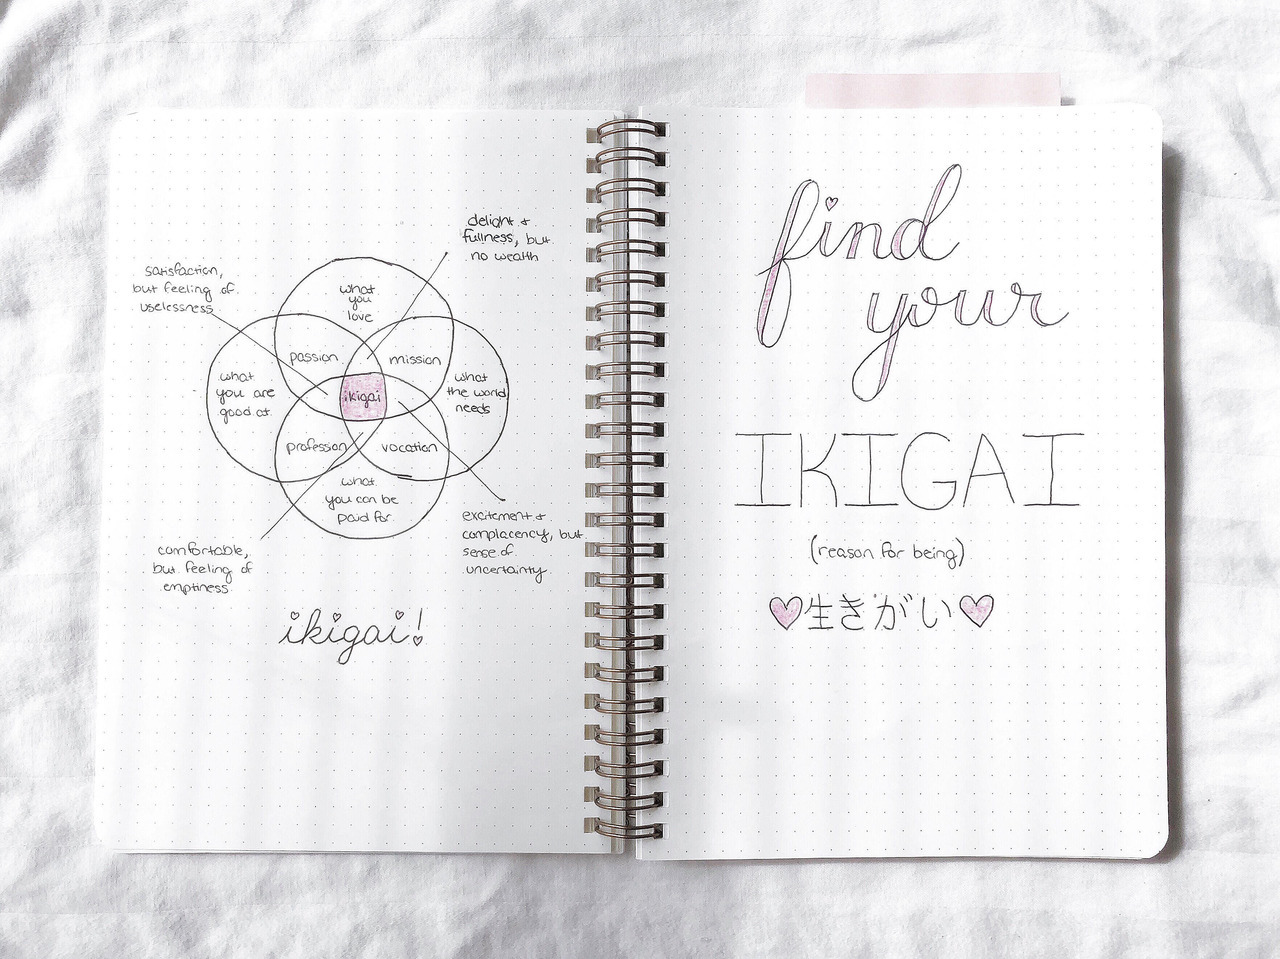 delight +
fullness, but
no wealth
satisfaction,
but feeling of
uselessness
what
you
love
passion
mission
what
you are
good at
ikigai
what
the world
needs
profession
vocation
what
you can be
paid for
comfortable,
but feeling of
emptiness
excitement +
complacency, but
sense of
uncertainty
ikigai!
find
your
IKIGAI
(reason for being)
生きがい